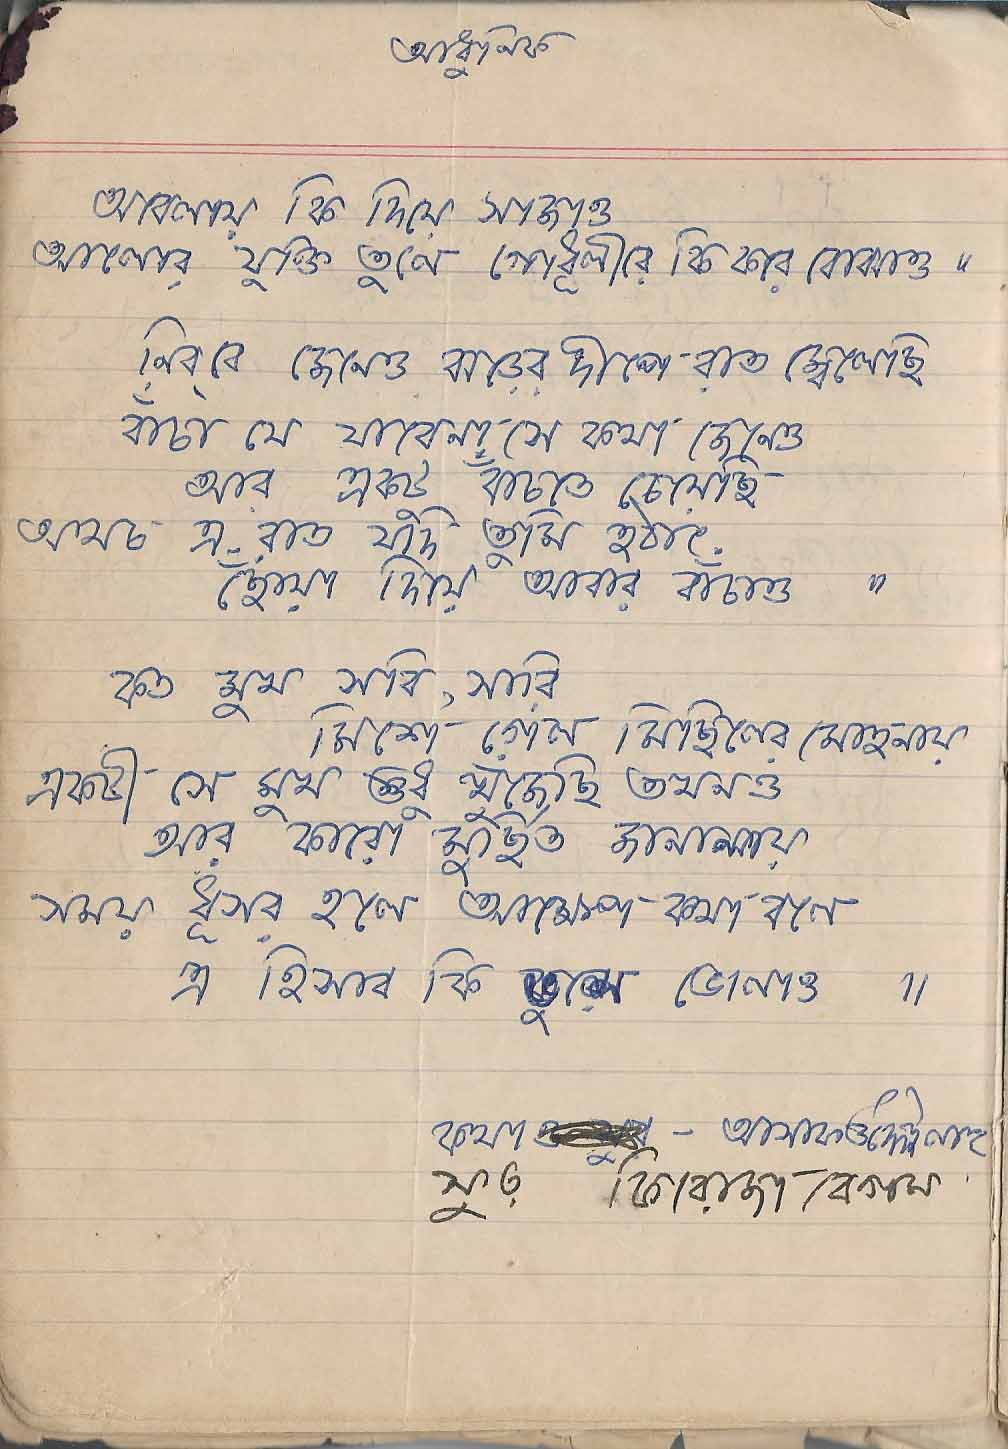 আধুনিক
অবেলায় কি দিয়ে সাজাও
আলোর যুক্তি তুলে গোধূলীরে কি কার বোঝাও "
নিরবে জেনেও ঝড়ের দ্বীপে রাত জ্বেলেছি
বাঁচা যে যাবেনা সে কথা জেনেও
আর একটু বাঁচাতে চেয়েছি
অথচ এ রাত যদি তুমি হঠাৎ
ছোঁয়া দিয়ে আবার বাঁচাও "
কত মুখ সারি, সারি
মিশে গেল মিছিলের মোহনায়
একটী সে মুখ শুধু খুঁজেছি তখনও
আর কারো মুর্ছিত জানালায়
সময় ধূসর হলে আক্ষেপ কথা বলে
এ হিসাব কি ভোলাও ॥
কথা -
সুর ফিরোজা বেগম